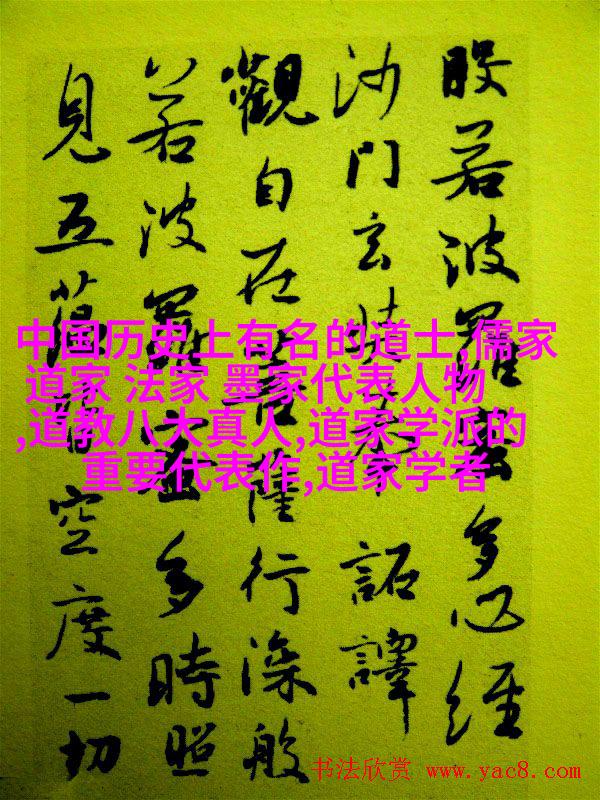 般若波羅蜜多心經
沙門玄奘奉 詔譯
觀自在菩薩行深般
若波羅蜜多時照
見五蘊皆空度一切
中国历史上有名的道士,儒家
道家 法家 墨家代表人物
,道教八大真人,道家学派的
重要代表作,道家学者
书法欣赏 www.yac8.com